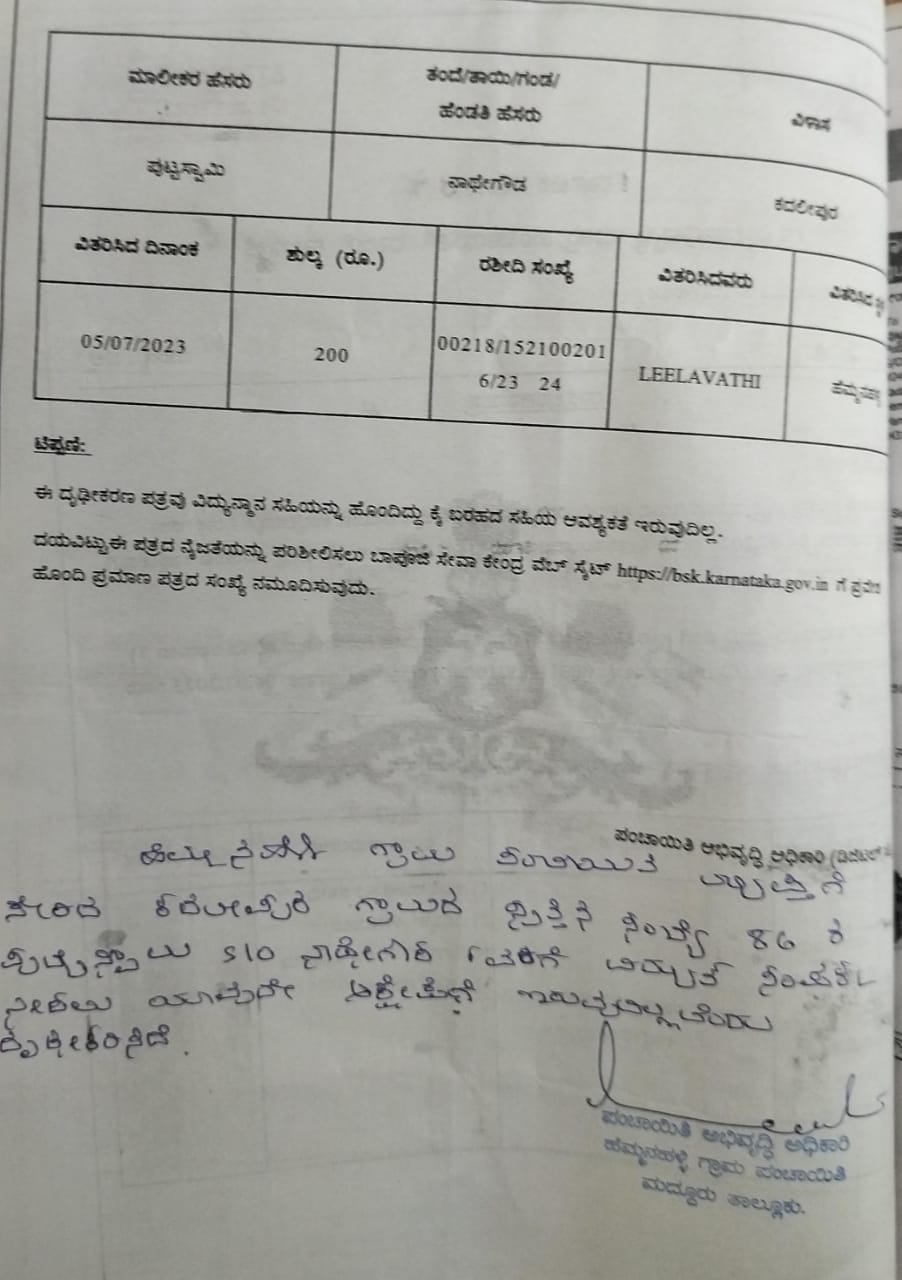 ಮಾಲೀಕರ ಹೆಸರು
ತಂದೆ/ತಾಯಿ/ಗಂಡ/
ಹೆಂಡತಿ ಹೆಸರು
ವಿಳಾಸ
ಪುಟ್ಟಸ್ವಾಮಿ
ನಾಥೇಗೌಡ
ಕದಲೀಪುರ
ವಿತರಿಸಿದ ದಿನಾಂಕ
ಶುಲ್ಕ (ರೂ.)
ರಶೀದಿ ಸಂಖ್ಯೆ
ವಿತರಿಸಿದವರು
ವಿತರಿಸಿದ
05/07/2023
200
00218/152100201
6/23 24
LEELAVATHI
ಟಿಪ್ಪಣಿ:
ಈ ದೃಢೀಕರಣ ಪತ್ರವು ವಿದ್ಯುನ್ಮಾನ ಸಹಿಯನ್ನು ಹೊಂದಿದ್ದು ಕೈ ಬರಹದ ಸಹಿಯ ಅವಶ್ಯಕತೆ ಇರುವುದಿಲ್ಲ.
ದಯವಿಟ್ಟು ಈ ಪತ್ರದ ನೈಜತೆಯನ್ನು ಪರಿಶೀಲಿಸಲು ಬಾಪೂಜಿ ಸೇವಾ ಕೇಂದ್ರ ವೆಬ್ ಸೈಟ್ https://bsk.karnataka.gov.in ಗೆ
ಹೊಂದಿ ಪ್ರಮಾಣ ಪತ್ರದ ಸಂಖ್ಯೆ ನಮೂದಿಸುವುದು.
ಪಂಚಾಯಿತಿ ಅಭಿವೃದ್ಧಿ ಅಧಿಕಾರಿ
ಹೆಮ್ಮನಹಳ್ಳಿ ಗ್ರಾಮ ಪಂಚಾಯಿತಿ ವ್ಯಾಪ್ತಿಗೆ
ಸೇರಿದ ಕದಲೀಪುರ ಗ್ರಾಮದ ಸ್ವತ್ತಿನ ಸಂಖ್ಯೆ 86 ರ
ಪುಟ್ಟಸ್ವಾಮಿ S/O ನಾಥೇಗೌಡ ರವರಿಗೆ ವಿದ್ಯುತ್ ಸಂಪರ್ಕ
ನೀಡಲು ಯಾವುದೇ ಆಕ್ಷೇಪಣೆ ಇರುವುದಿಲ್ಲವೆಂದು
ದೃಢೀಕರಿಸಿದೆ.
ಪಂಚಾಯಿತಿ ಅಭಿವೃದ್ಧಿ ಅಧಿಕಾರಿ
ಹೆಮ್ಮನಹಳ್ಳಿ ಗ್ರಾಮ ಪಂಚಾಯಿತಿ
ಮದ್ದೂರು ತಾಲ್ಲೂಕು.